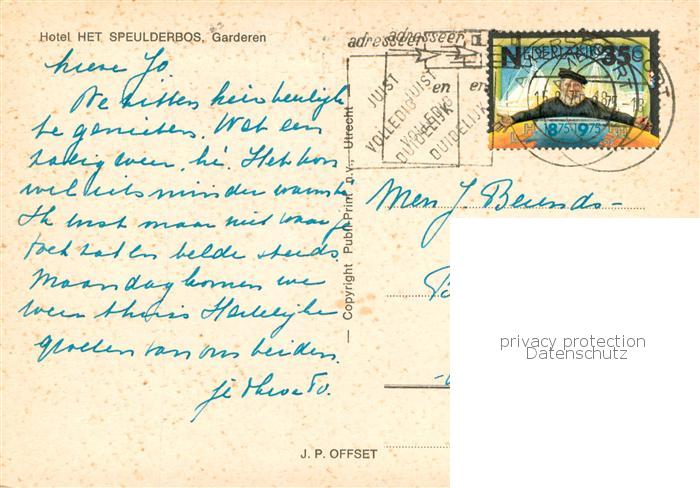 Hotel HET SPEULDERBOS, Garderen
Lieve Jo
We zitten hier heerlijk
te genieten. Wat een
zalig weer, hè. Het kon
wel iets minder warm
Ik wist maar niet waar je
toch zat en belde steeds.
Maandag komen we
weer thuis Hartelijke
groeten van ons beiden.
je
— Copyright Publi-Print n.v., Utrecht —
J. P. OFFSET
adresseer adresseer
en en
JUIST JUIST
VOLLEDIG VOLLEDIG
DUIDELIJK DUIDELIJK
AMERSFOORT
NEDERLAND 35C
1875 1975
Mej J. Berends
privacy protection
Datenschutz